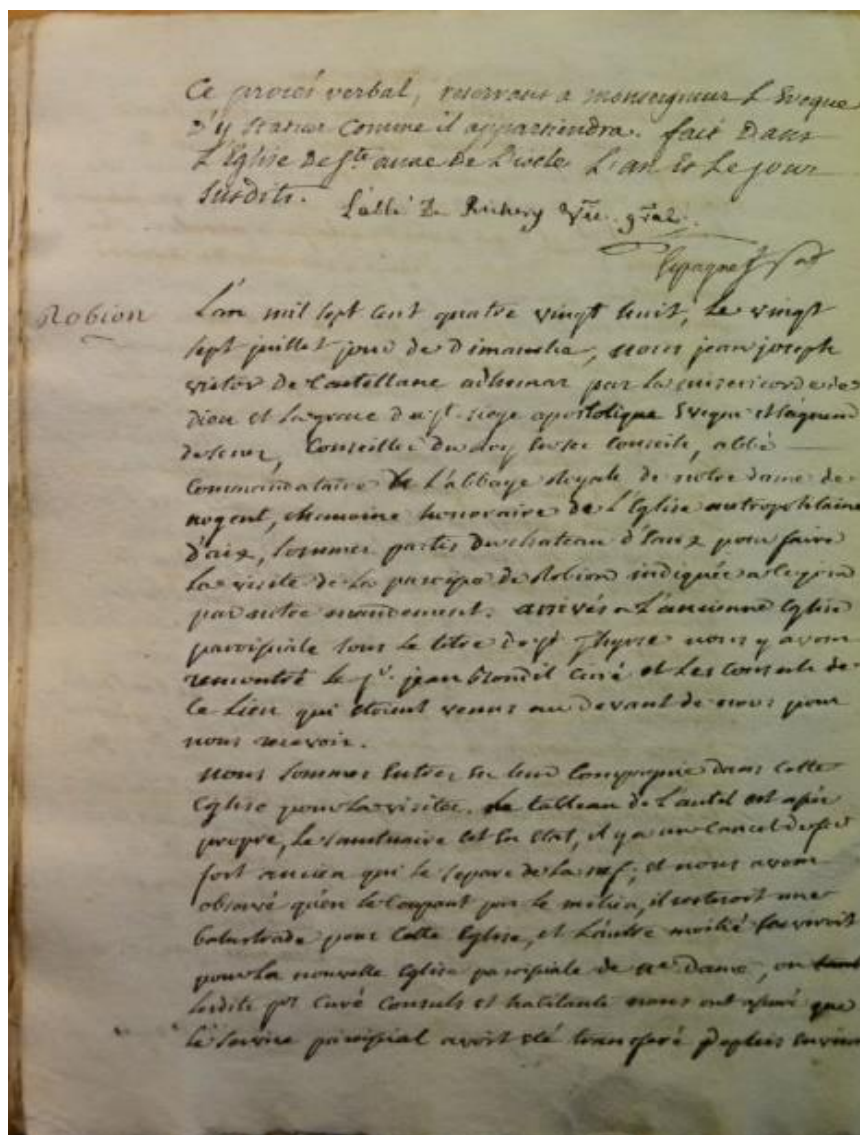 Ce procès verbal, reservant a monseigneur L'Eveque
D'y statuer comme il appartiendra. fait Dans
L'Eglise de Ste anne de L'isole L'an Et Le jour
susdits. L'abbé De Richery vic. gral.
Espagnet
Robion
L'an mil sept cent quatre vingt huit, Le vingt
sept juillet jour de Dimanche, nous jean joseph
victor de Castellane adhemar par la misericorde de
dieu et la grace du st. siege apostolique Eveque et seigneur
de senez, Conseiller du roy en ses conseils, abbé
Commendataire de L'abbaye royale de notre dame de
nogent, chanoine honoraire de L'Eglise metropolitaine
d'aix, sommes partis du chateau d'Eoux pour faire
la visite de la paroisse de Robion indiquée a ce jour
par notre mandement. arrivés a L'ancienne Eglise
paroissiale sous le titre de st Thyrse nous y avons
rencontré le sr. jean blondil curé et Les consuls de
ce Lieu qui etoient venus au devant de nous pour
nous recevoir.
nous sommes Entrés en leur Compagnie dans cette
Eglise pour la visiter. Le tableau de L'autel est assés
propre, Le sanctuaire est En etat, il y a un cancel de fer
fort ancien qui le separe de la nef; et nous avons
observé qu'en le Coupant par le milieu, il resteroit une
balustrade pour Cette Eglise, et L'autre moitié serviroit
pour la nouvelle Eglise paroissiale de ne Dame, ou
lesdits srs Curé Consuls et habitants nous ont assuré que
le service paroissial avoit eté transferé Depuis environ